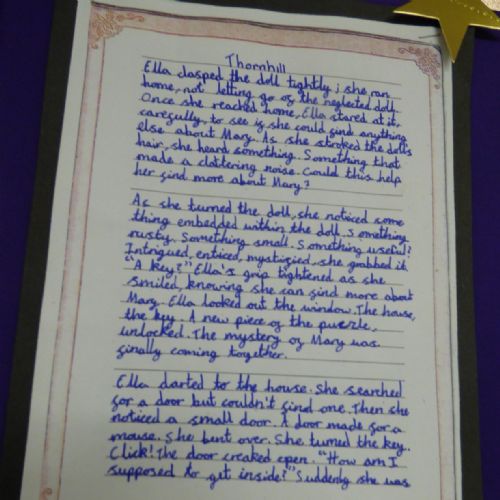 Thornhill
Ella clasped the doll tightly; she ran
home, not letting go of the neglected doll.
Once she reached home, Ella stared at it,
carefully, to see if she could find anything
else about Mary. As she stroked the doll's
hair, she heard something. Something that
made a clattering noise. Could this help
her find more about Mary?
As she turned the doll, she noticed some
thing embedded within the doll. Something
rusty. Something small. Something useful?
Intrigued, enticed, mystified, she grabbed it.
"A key?" Ella's grip tightened as she
smiled, knowing she can find more about
Mary. Ella looked out the window. The house,
the key. A new piece of the puzzle,
unlocked. The mystery of Mary was
finally coming together.
Ella darted to the house. She searched
for a door but couldn't find one. Then she
noticed a small door. A door made for a
mouse. She bent over. She turned the key.
Click! The door creaked open. "How am I
supposed to get inside?" Suddenly she was